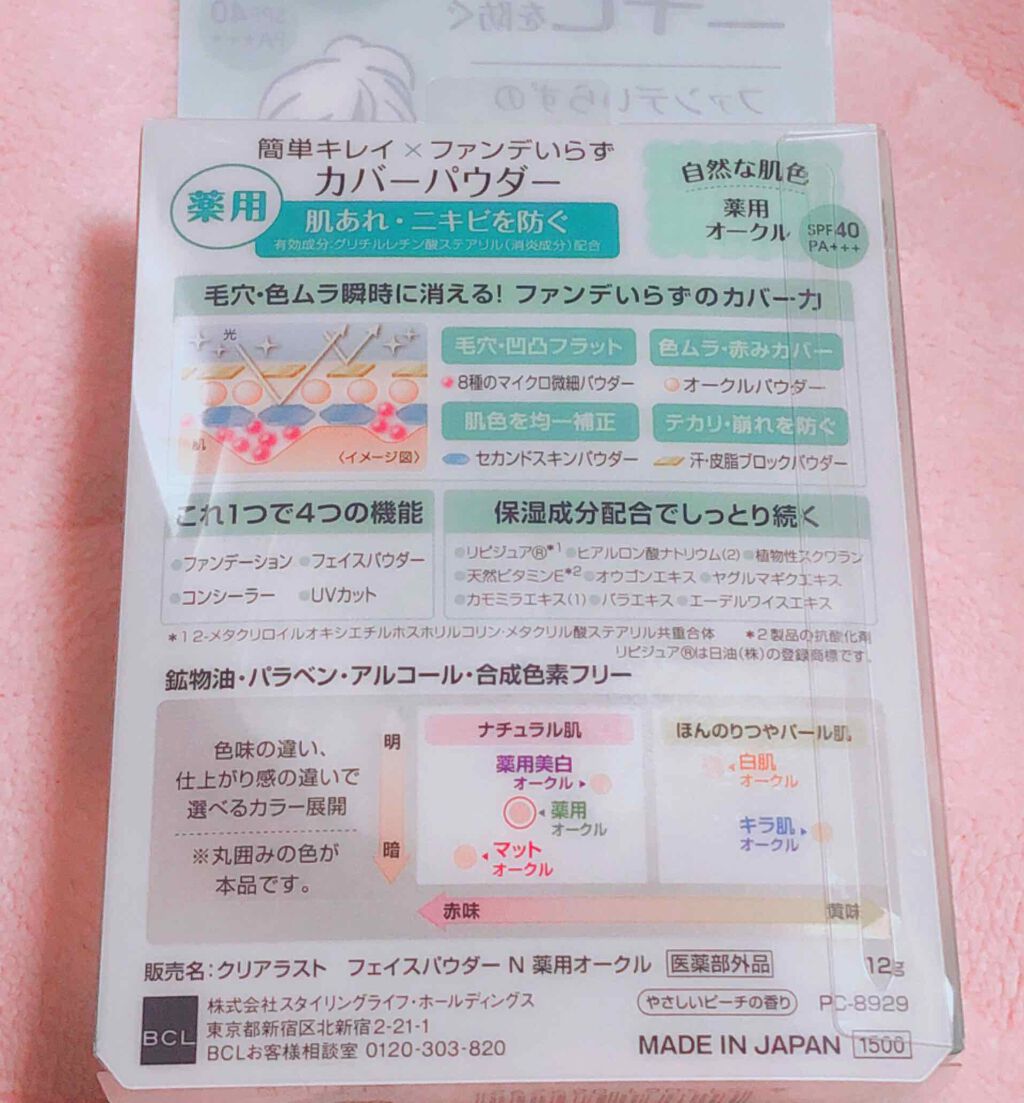 SPF40
PA+++
ニキビを防ぐ
ファンデいらずの
簡単キレイ×ファンデいらず
カバーパウダー
薬用
肌あれ・ニキビを防ぐ
有効成分:グリチルレチン酸ステアリル(消炎成分)配合
自然な肌色
薬用
オークル
SPF40
PA+++
毛穴・色ムラ瞬時に消える! ファンデいらずのカバー力
光
肌
〈イメージ図〉
毛穴・凹凸フラット
8種のマイクロ微細パウダー
色ムラ・赤みカバー
オークルパウダー
肌色を均一補正
セカンドスキンパウダー
テカリ・崩れを防ぐ
汗・皮脂ブロックパウダー
これ1つで4つの機能
ファンデーション フェイスパウダー
コンシーラー UVカット
保湿成分配合でしっとり続く
リピジュア®*1 ヒアルロン酸ナトリウム(2) 植物性スクワラン
天然ビタミンE*2 オウゴンエキス ヤグルマギクエキス
カモミラエキス(1) バラエキス エーデルワイスエキス
*1 2-メタクリロイルオキシエチルホスホリルコリン・メタクリル酸ステアリル共重合体 *2 製品の抗酸化剤
リピジュア®は日油(株)の登録商標です。
鉱物油・パラベン・アルコール・合成色素フリー
色味の違い、
仕上がり感の違いで
選べるカラー展開
※丸囲みの色が
本品です。
明
暗
ナチュラル肌
薬用美白
オークル
薬用
オークル
マット
オークル
ほんのりつやパール肌
白肌
オークル
キラ肌
オークル
赤味
黄味
販売名:クリアラスト フェイスパウダー N 薬用オークル 医薬部外品 12g
BCL
株式会社スタイリングライフ・ホールディングス
東京都新宿区北新宿2-21-1
BCLお客様相談室 0120-303-820
やさしいピーチの香り PC-8929
MADE IN JAPAN 1500